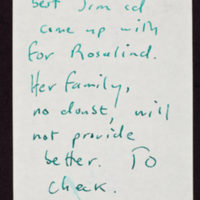 best I'm cd
come up with
for Rosalind.
Her family,
no doubt, will
not provide
better. To
check.